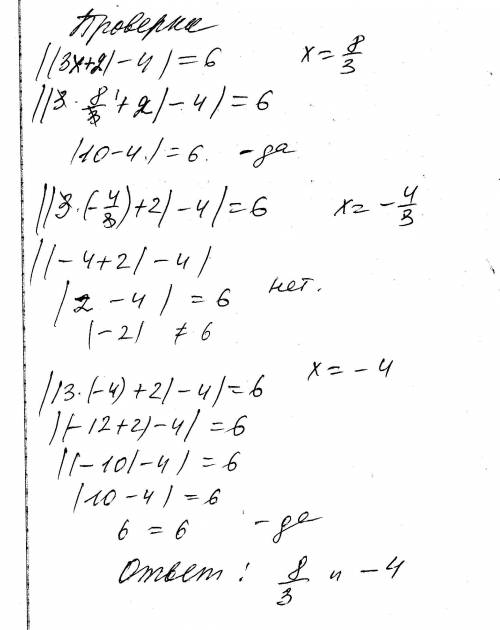 Проверка
||3x+2|-4|=6   x=8/3
||3·8/3+2|-4|=6
|10-4|=6. -да
||3·(-4/3)+2|-4|=6   x=-4/3
||-4+2|-4|
|2-4|=6   нет.
|-2| ≠ 6
||3·(-4)+2|-4|=6   x=-4
||-12+2|-4|=6
||-10|-4|=6
|10-4|=6
6=6   -да
Ответ: 8/3 и -4